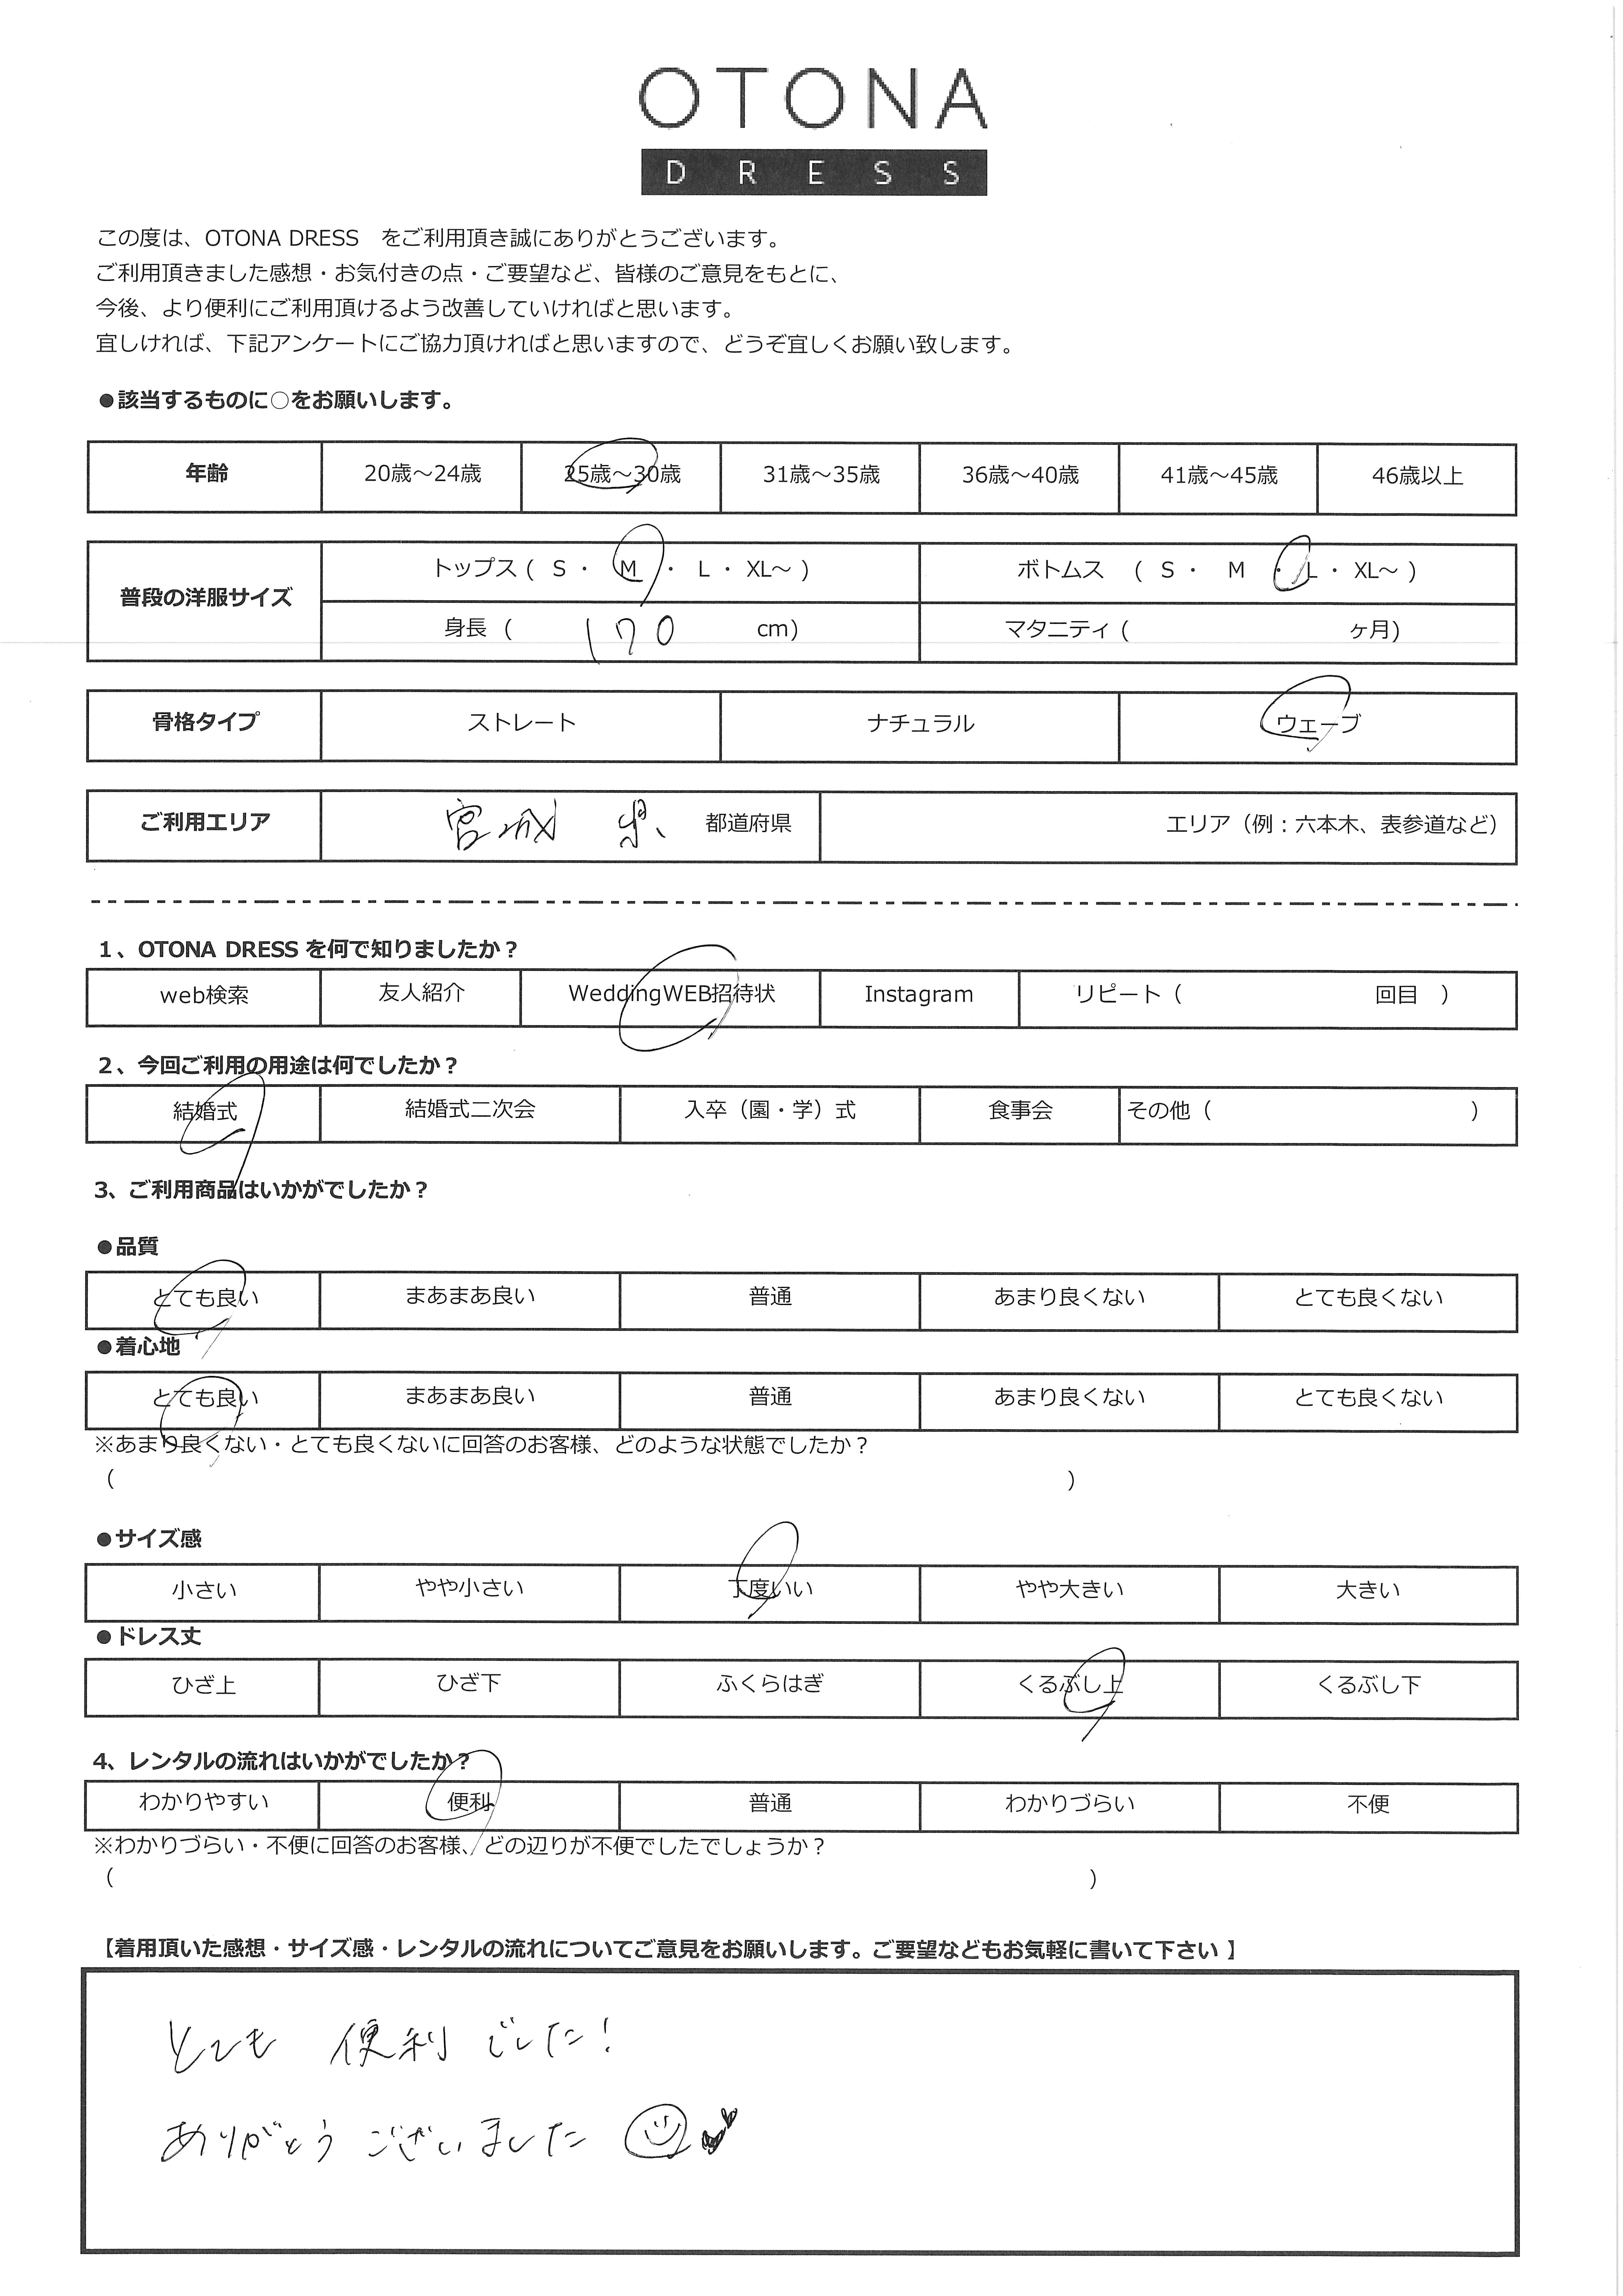 OTONA
DRESS
この度は、OTONA DRESS　をご利用頂き誠にありがとうございます。
ご利用頂きました感想・お気付きの点・ご要望など、皆様のご意見をもとに、
今後、より便利にご利用頂けるよう改善していければと思います。
宜しければ、下記アンケートにご協力頂ければと思いますので、どうぞ宜しくお願い致します。
●該当するものに○をお願いします。
年齢 20歳～24歳 25歳～30歳 31歳～35歳 36歳～40歳 41歳～45歳 46歳以上
普段の洋服サイズ トップス ( S ・ M ・ L ・ XL～ ) ボトムス ( S ・ M ・ L ・ XL～ )
身長 ( 170 cm) マタニティ ( ヶ月)
骨格タイプ ストレート ナチュラル ウェーブ
ご利用エリア 宮城 県 都道府県 エリア（例：六本木、表参道など）
1、OTONA DRESS を何で知りましたか？
web検索 友人紹介 WeddingWEB招待状 Instagram リピート（ 回目 ）
2、今回ご利用の用途は何でしたか？
結婚式 結婚式二次会 入卒（園・学）式 食事会 その他（ ）
3、ご利用商品はいかがでしたか？
●品質
とても良い まあまあ良い 普通 あまり良くない とても良くない
●着心地
とても良い まあまあ良い 普通 あまり良くない とても良くない
※あまり良くない・とても良くないに回答のお客様、どのような状態でしたか？
（ ）
●サイズ感
小さい やや小さい 丁度いい やや大きい 大きい
●ドレス丈
ひざ上 ひざ下 ふくらはぎ くるぶし上 くるぶし下
4、レンタルの流れはいかがでしたか？
わかりやすい 便利 普通 わかりづらい 不便
※わかりづらい・不便に回答のお客様、どの辺りが不便でしたでしょうか？
（ ）
【着用頂いた感想・サイズ感・レンタルの流れについてご意見をお願いします。ご要望などもお気軽に書いて下さい】
とても 便利 でした！
ありがとう ございました